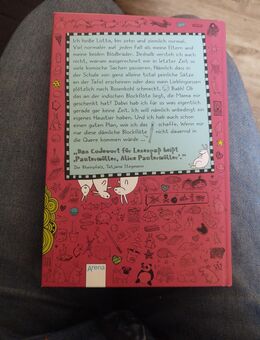 Ich heiße Lotta, bin zehn und ziemlich normal.
Viel normaler auf jeden Fall als meine Eltern und
meine beiden Blödbrüder. Deshalb versteh ich auch
nicht, warum ausgerechnet mir in letzter Zeit so
viele komische Sachen passieren. Nämlich dass in
der Schule von ganz alleine total peinliche Sätze
an der Tafel erscheinen oder dass mein Lieblingsessen
plötzlich nach Rosenkohl schmeckt. Bäh! Ob
das an der indischen Blockflöte liegt, die Mama mir
geschenkt hat? Dabei hab ich für so was eigentlich
gerade gar keine Zeit, ich will nämlich unbedingt ein
eigenes Haustier haben. Und ich hab auch schon
einen guten Plan, wie ich das schaffe. Wenn mir
nur diese dämliche Blockflöte nicht dauernd in
die Quere kommen würde ...
„Das Codewort für Lesespaß heißt
‚Pantermüller, Alice Pantermüller'.“
Die Rheinpfalz, Tatjana Stegmann
Arena